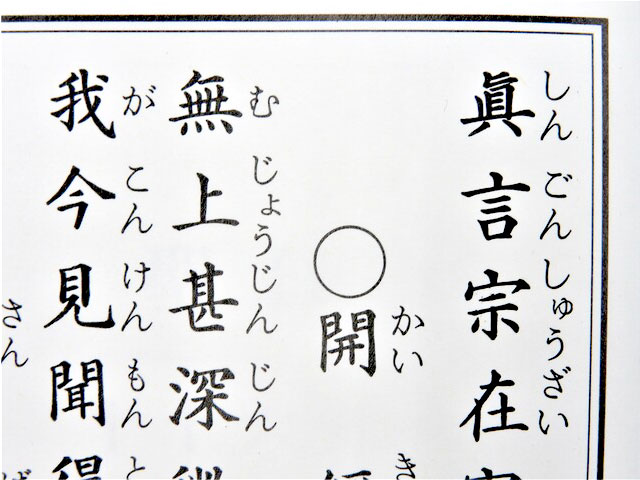 しんごんしゅうざい
眞言宗在
かい
○開
むじょうじんじん
無上甚深
がこんけんもん
我今見聞
さん